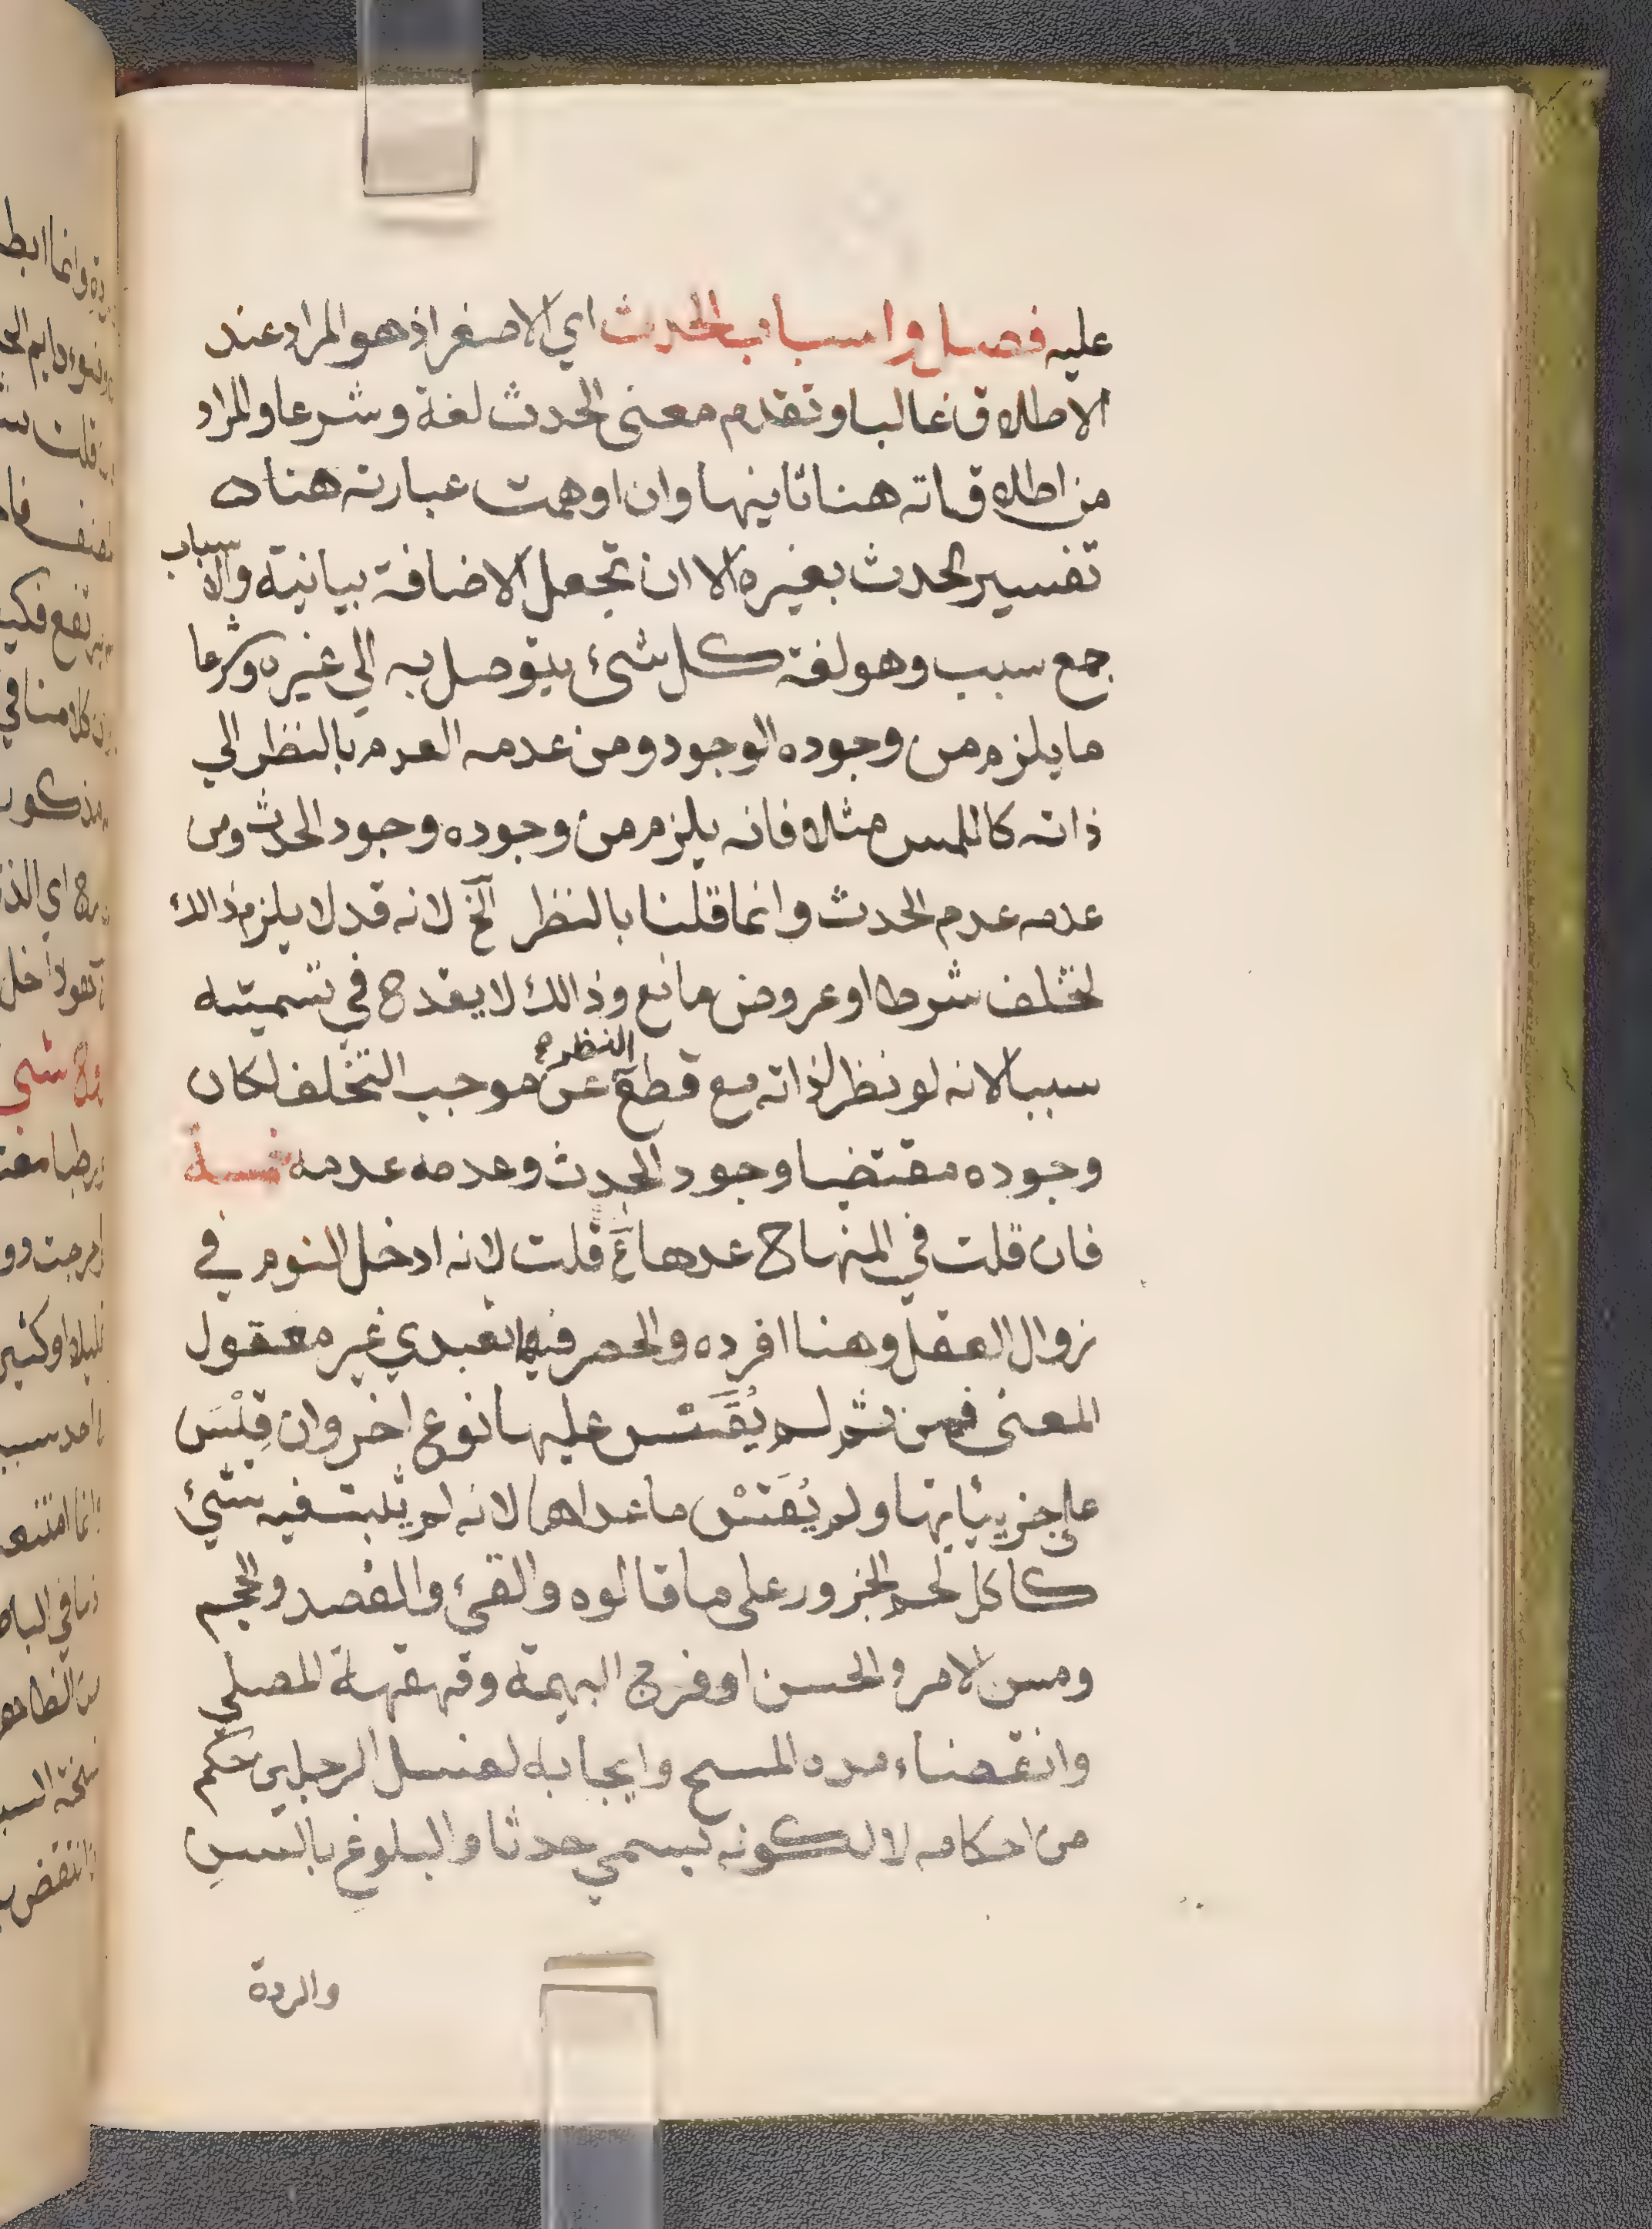 عليه فصل واسباب الحدث اي الاصغر اذ هو المراد عند
الاطلاق غالبا وتقدم معنى الحدث لغة وشرعا والمراد
من اطلاقاته هنا ثانيها وان اوهمت عبارته هنا ان
تفسير الحدث بغيره الا ان تجعل الاضافة بيانية والاسباب
جمع سبب وهو لغة كل شئ يتوصل به الي غيره وشرعا
ما يلزم من وجوده الوجود ومن عدمه العدم بالنظر الي
ذاته كاللمس مثلا فانه يلزم من وجوده وجود الحدث ومن
عدمه عدم الحدث وانما قلنا بالنظر الخ لانه قد لا يلزم ذالك
لتخلف شرط او عروض مانع وذالك لا يقدح في تسميته
سببا لانه لو نظر لذاته مع قطع النظر عن موجب التخلف لكان
وجوده مقتضيا وجود الحدث وعدمه عدمه خمسة
فان قلت في المنهاج عدها ع قلت لانه ادخل النوم في
زوال العقل وهنا افرده والحصر فيها تعبدي غير معقول
المعنى فمن ثم لم يُقَس عليها نوع اخر وان قِيْسَ
على جزييئاتها ولم يُقَسْ ما عداها لانه لم يثبت فيه شئ
كاكل لحم الجزور على ما قالوه والقئ والفصد والحجم
ومس الامرد الحسن او فرج البهيمة وقهقهة المصلي
وانقضاء مده المسح وايجابه لغسل الرجلين حكم
من احكامه لا لكونه يسمي حدثا والبلوغ بالسنِ
والردة